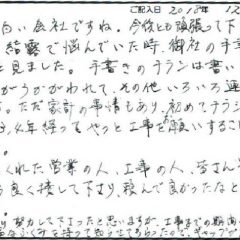 ご記入日 2018年 12
白い会社ですね。今後とも頑張って下
綺麗で悩んでいた時、御社の手書
を見ました。手書きのチラシは書い
がうかがわれて、その他いろいろ連
。ただ家計の事情もあり、初めてチラシ
4年経ってやっと工事を願いすること
。
くれた営業の人、工事の人、皆さん
も良く接して下さり、頼んで良かったなと
。
努力して下さったと思いますが、工事までの期間